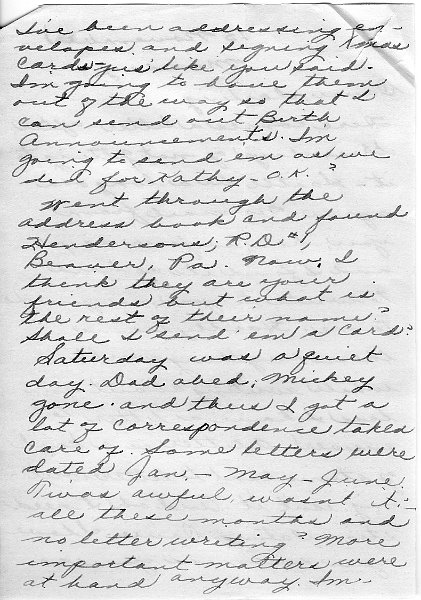 I've been addressing en-
velopes and signing Xmas
Cards - jus' like you said.
I'm going to have them
out of the way so that I
can send out Birth
Announcements. I'm
going to send em as we
did for Kathy - O.K.?
Went through the
address book and found
Hendersons, R.D #1,
Beaver, Pa. Now, I
think they are your
friends but what is
the rest of their name?
Shall I send 'em a card?
Saturday was a quiet
day. Dad abed; Mickey
gone - and thus I got a
lot of correspondence taken
care of. Some letters were
dated Jan. - May - June.
'Twas awful, wasn't it: -
all these months and
no letter writing? More
important matters were
at hand anyway. I'm